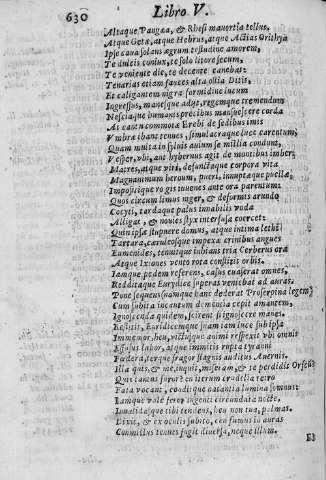 630
Libro V.
Altaque Pangæa, & Rhesi mavortia tellus,
Atque Getæ, atque Hebrus, atque Actias Orithya
Ipse cava solans ægrum testudine amorem,
Te dulcis coniux, te solo litore secum,
Te veniente die, te decente canebat:
Tenarias etiam fauces alta ostia Ditis,
Et caligantem nigra formidine lucum
Ingressus, manesque adijt, regemque tremendum
Nesciaque humanis precibus mansuescere corda
At cantu commotæ Erebi de sedibus imis
Umbræ ibant tenues, simulacraque luce carentum,
Quam multa in sylvis avium se millia condunt,
Vesper, vbi, aut hybernus agit de montibus imber:
Matres, atque viri, defunctaque corpora vita
Magnanimum heroum, pueri, innuptæque puellæ,
Impositique rogis iuuenes ante ora parentum
Quos circum limus niger, & deformis arundo
Cocyti, tardaque palus innabilis vnda
Alligat, & novies styx interfusa coercet:
Quin ipsæ stupuere domus, atque intima lethi
Tartara, cæruleosque impexæ crinibus angues
Eumenides, tenuitque inhians tria Cerberus ora
Atque Ixionei vento rota constitit orbis.
Iamque pedem referens, casus euaserat omnes,
Redditaque Eurydice superas veniebat ad auras.
Pone sequens (namque hanc dederat Proserpina legem)
Cum subita incautum dementia cepit amantem,
Ignoscenda quidem, scirent si ignoscere manes.
Restitit, Euridicemque suam iam luce sub ipsa
Immemor, heu, victusque animi respexit vbi omnis
Effusus labor, atque immitis rupta tyranni
Fœdera, terque fragor stagnis auditus Auernis.
Illa quis, & me, inquit, miseram, & te perdidit Orfeus
Quis tantus furor? en iterum crudelia retro
Fata vocant, conditque natantia lumina somnus:
Iamque vale feror ingenti circundata nocte,
Inualidasque tibi tendens, heu non tua, palmas.
Dixit, & ex oculis subito, ceu fumus in auras
Commistus tenues fugit diversa, neque illum.